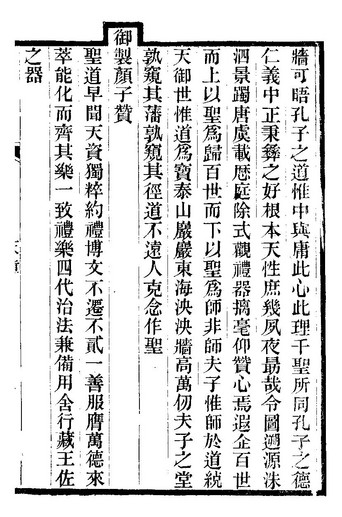 牆可晤孔子之道惟中與庸此心此理千聖所同孔子之德
仁義中正秉彝之好根本天性庶幾夙夜勗哉令圖遡源洙
泗景躅唐虞載歷庭除式觀禮器摛毫仰贊心焉遐企百世
而上以聖爲歸百世而下以聖爲師非師夫子惟師於道統
天御世惟道爲寶泰山巖巖東海泱泱牆高萬仞夫子之堂
孰窺其藩孰窺其徑道不遠人克念作聖
御製顏子贊
聖道早聞天資獨粹約禮博文不遷不貳一善服膺萬德來
萃能化而齊其樂一致禮樂四代治法兼備用舍行藏王佐
之器